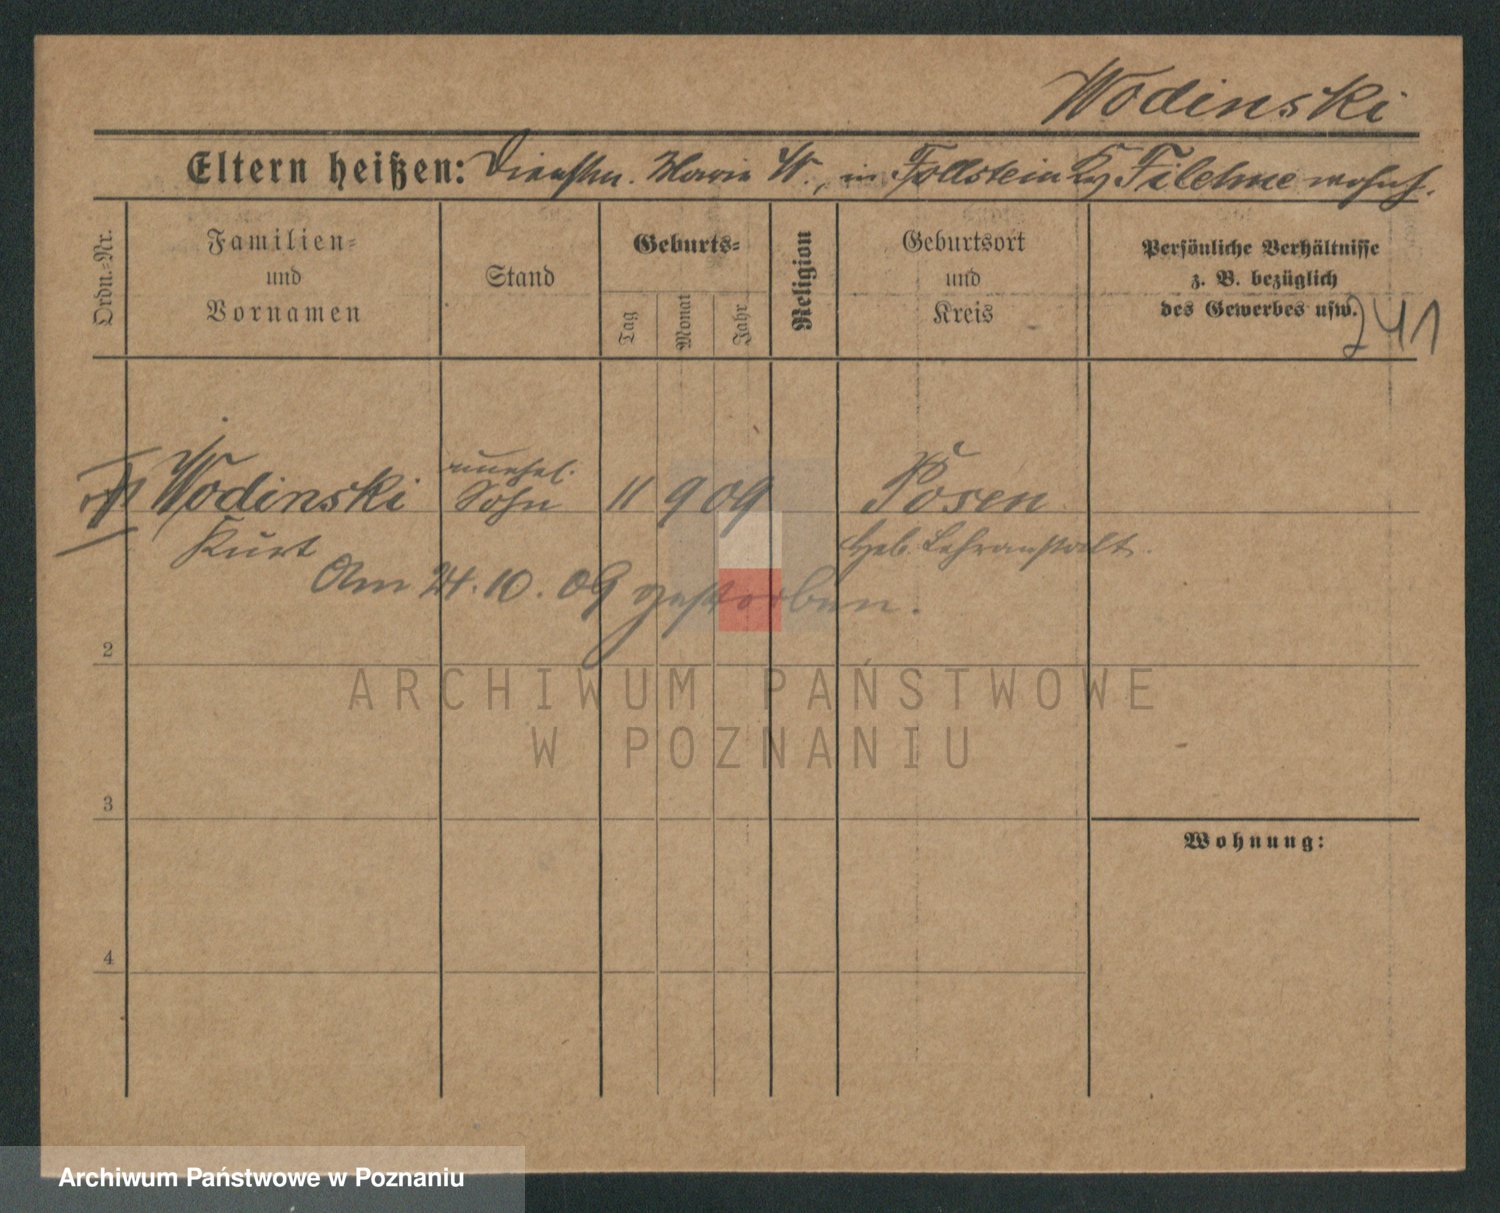 Wodinski
Eltern heißen: Dienstm. Marie W., in Follstein Krs Filehne wohnh.
Ordn.=Nr.
Familien=
und
Vornamen
Stand
Geburts=
Tag
Monat
Jahr
Religion
Geburtsort
und
Kreis
Persönliche Verhältnisse
z. B. bezüglich
des Gewerbes usw.
241
Wodinski
Kurt
unehel.
Sohn
11 9 09
Posen
Heb. Lehranstalt.
Am 24. 10. 09 gestorben.
2
ARCHIWUM PAŃSTWOWE
W POZNANIU
3
Wohnung:
4
Archiwum Państwowe w Poznaniu